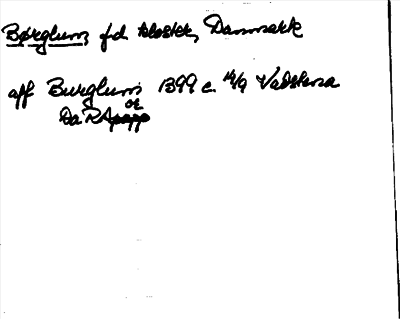 Børglum, fd kloster, Danmark
aff Burglum 1399 c. 14/9 Vadstena
or
Da R Apapp